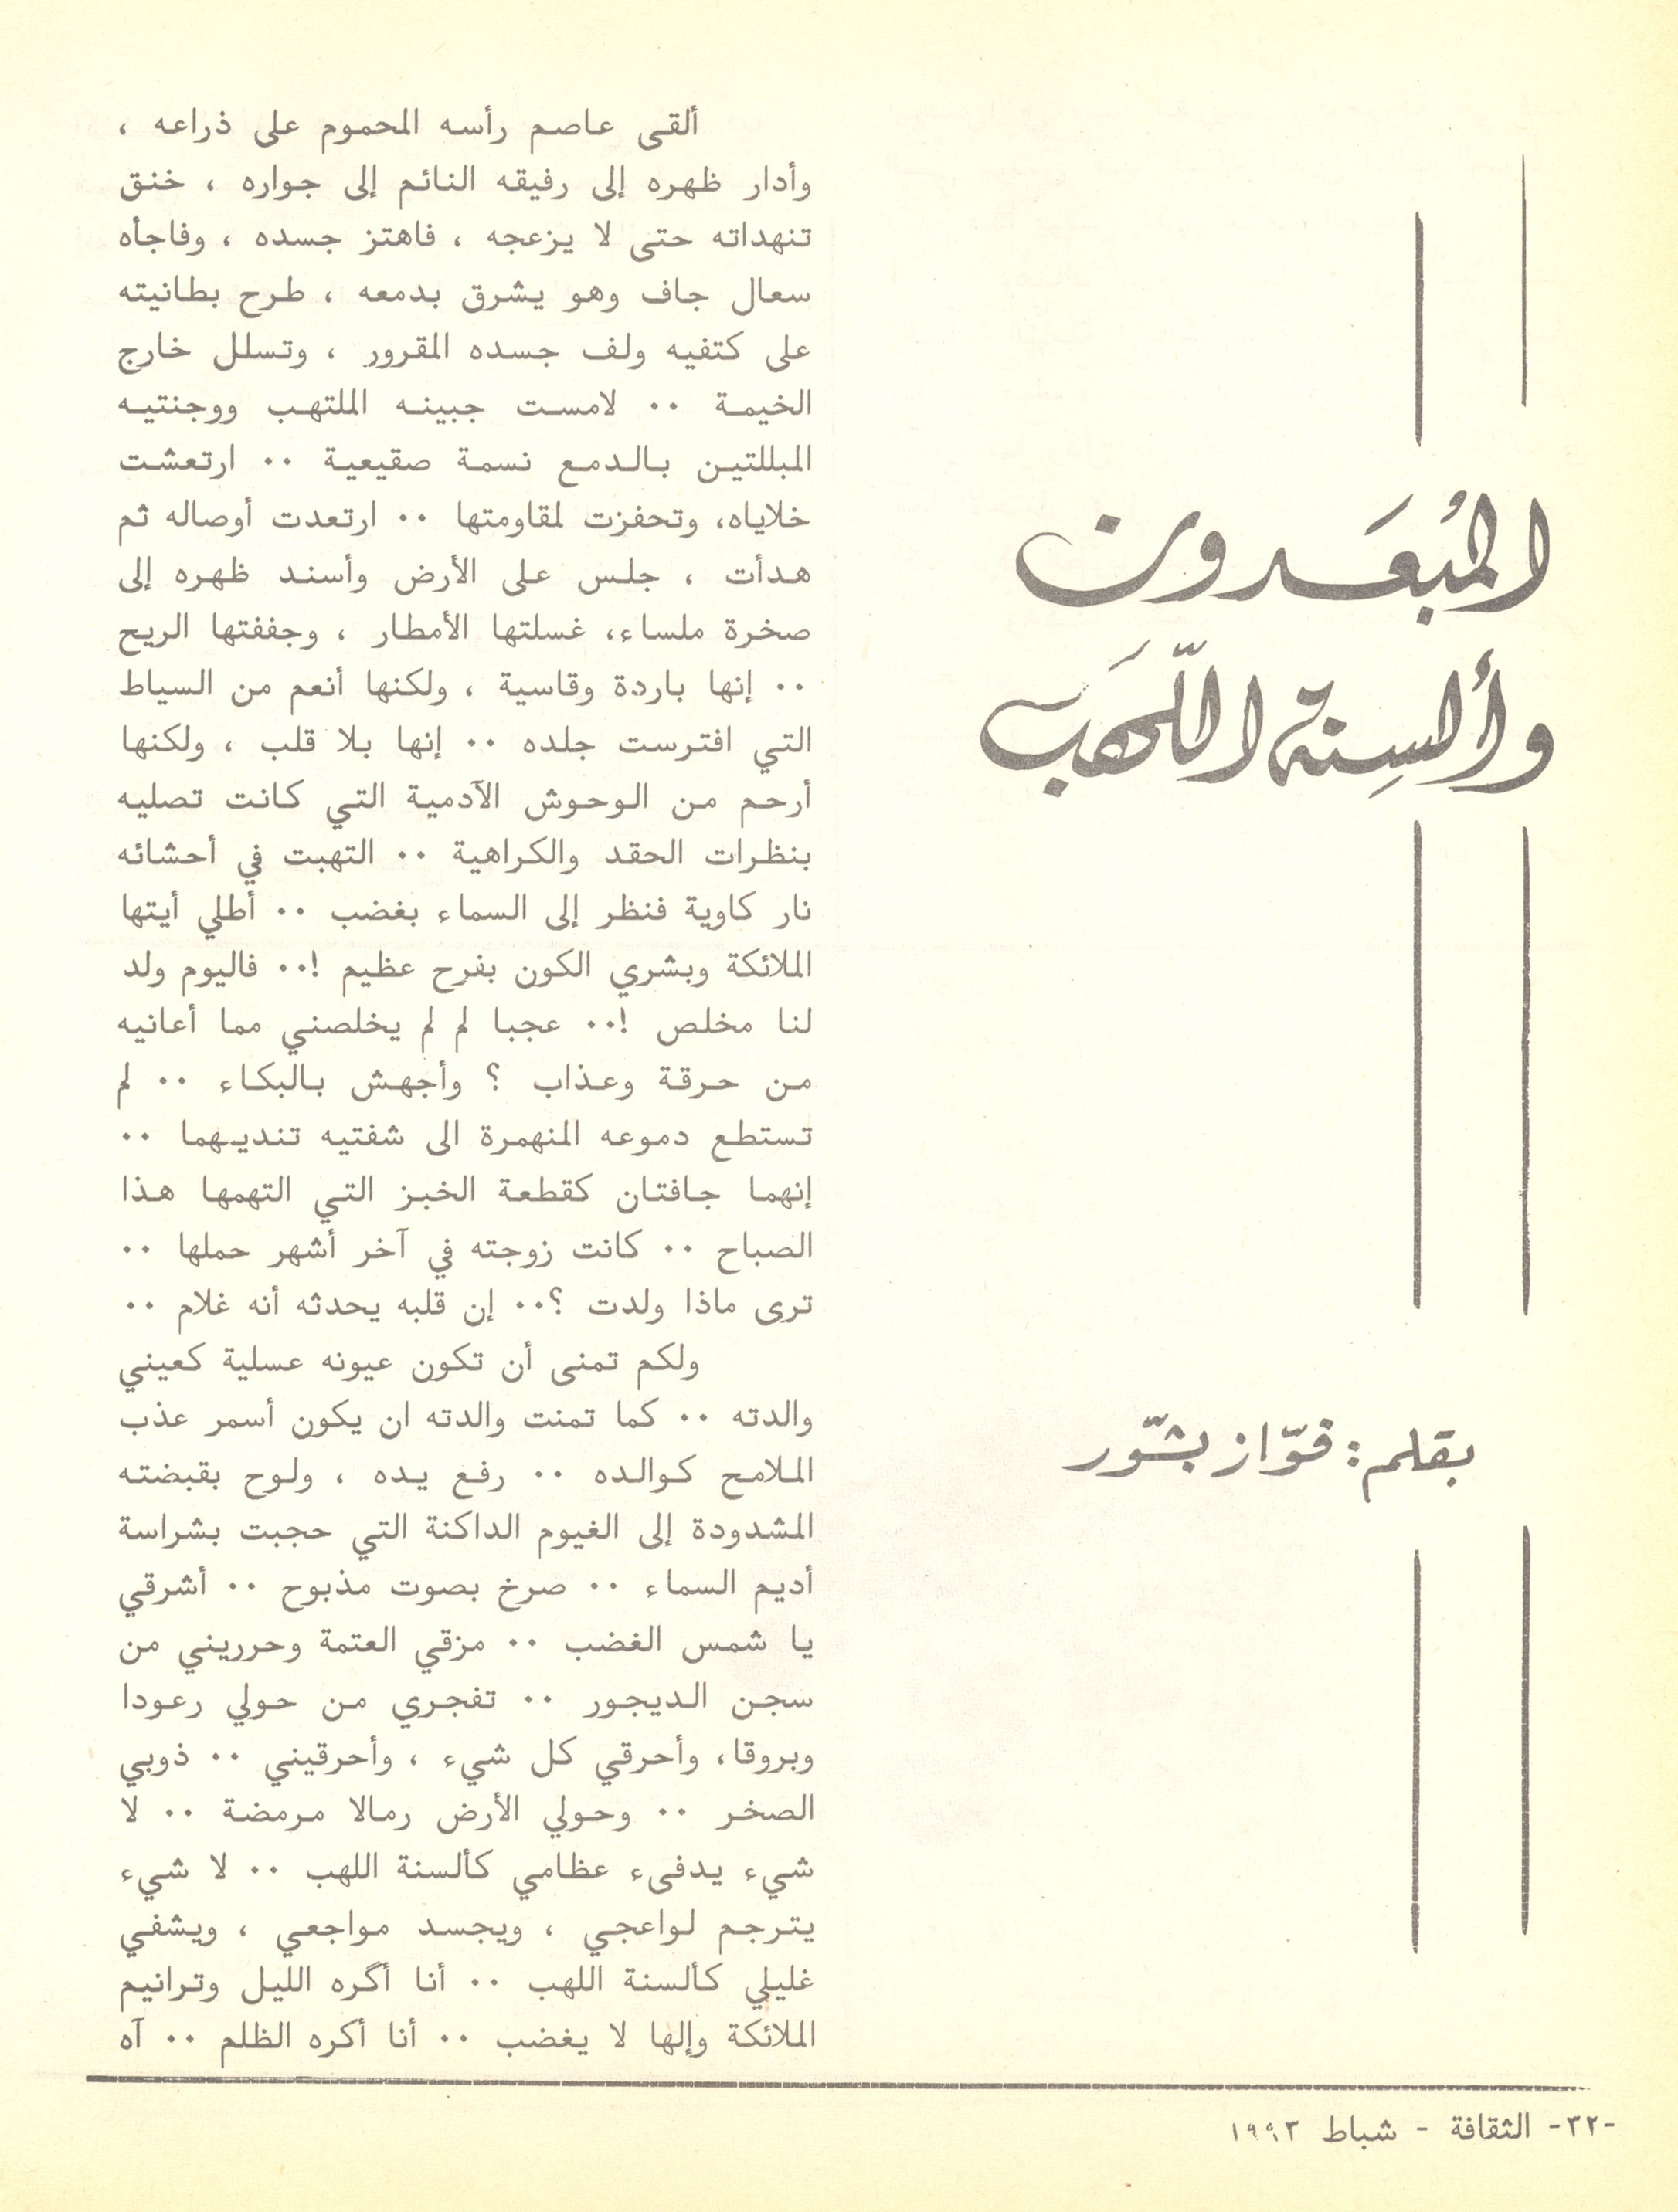 المُبعَدون
وألسِنة اللّهَب
بقلم: فوّاز بشّور
ألقى عاصم رأسه المحموم على ذراعه ،
وأدار ظهره إلى رفيقه النائم إلى جواره ، خنق
تنهداته حتى لا يزعجه ، فاهتز جسده ، وفاجأه
سعال جاف وهو يشرق بدمعه ، طرح بطانيته
على كتفيه ولف جسده المقرور ، وتسلل خارج
الخيمة ٠٠ لامست جبينه الملتهب ووجنتيه
المبللتين بالدمع نسمة صقيعية ٠٠ ارتعشت
خلاياه، وتحفزت لمقاومتها ٠٠ ارتعدت أوصاله ثم
هدأت ، جلس على الأرض وأسند ظهره إلى
صخرة ملساء، غسلتها الأمطار ، وجففتها الريح
٠٠ إنها باردة وقاسية ، ولكنها أنعم من السياط
التي افترست جلده ٠٠ إنها بلا قلب ، ولكنها
أرحم من الوحوش الآدمية التي كانت تصليه
بنظرات الحقد والكراهية ٠٠ التهبت في أحشائه
نار كاوية فنظر إلى السماء بغضب ٠٠ أطلي أيتها
الملائكة وبشري الكون بفرح عظيم !٠٠ فاليوم ولد
لنا مخلص !٠٠ عجبا لم لم يخلصني مما أعانيه
من حرقة وعذاب ؟ وأجهش بالبكاء ٠٠ لم
تستطع دموعه المنهمرة الى شفتيه تنديهما ٠٠
إنهما جافتان كقطعة الخبز التي التهمها هذا
الصباح ٠٠ كانت زوجته في آخر أشهر حملها ٠٠
ترى ماذا ولدت ؟٠٠ إن قلبه يحدثه أنه غلام ٠٠
ولكم تمنى أن تكون عيونه عسلية كعيني
والدته ٠٠ كما تمنت والدته ان يكون أسمر عذب
الملامح كوالده ٠٠ رفع يده ، ولوح بقبضته
المشدودة إلى الغيوم الداكنة التي حجبت بشراسة
أديم السماء ٠٠ صرخ بصوت مذبوح ٠٠ أشرقي
يا شمس الغضب ٠٠ مزقي العتمة وحرريني من
سجن الديجور ٠٠ تفجري من حولي رعودا
وبروقا، وأحرقي كل شيء ، وأحرقيني ٠٠ ذوبي
الصخر ٠٠ وحولي الأرض رمالا مرمضة ٠٠ لا
شيء يدفىء عظامي كألسنة اللهب ٠٠ لا شيء
يترجم لواعجي ، ويجسد مواجعي ، ويشفي
غليلي كألسنة اللهب ٠٠ أنا أكره الليل وترانيم
الملائكة وإلها لا يغضب ٠٠ أنا أكره الظلم ٠٠ آه
-٣٢- الثقافة - شباط ١٩٩٣